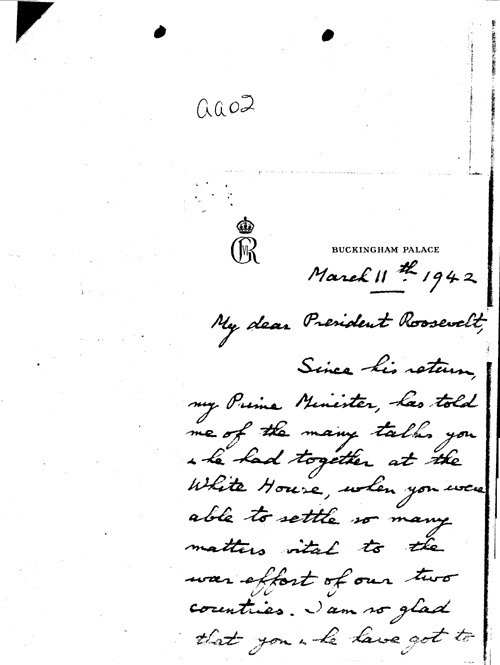 aa02
GRVI
BUCKINGHAM PALACE
March 11th. 1942
My dear President Roosevelt,
Since his return,
my Prime Minister, has told
me of the many talks you
& he had together at the
White House, when you were
able to settle so many
matters vital to the
war effort of our two
countries. I am so glad
that you & he have got to